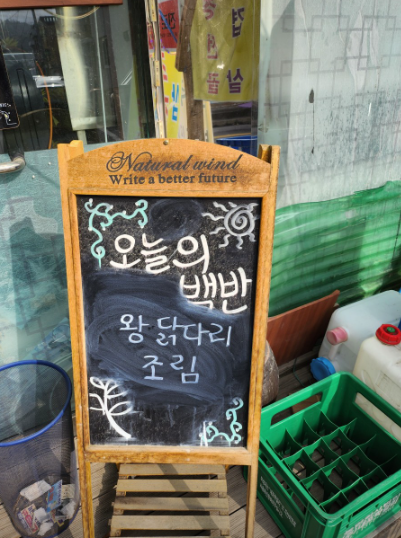 Natural wind
Write a better future
오늘의
백반
왕 닭다리
조림